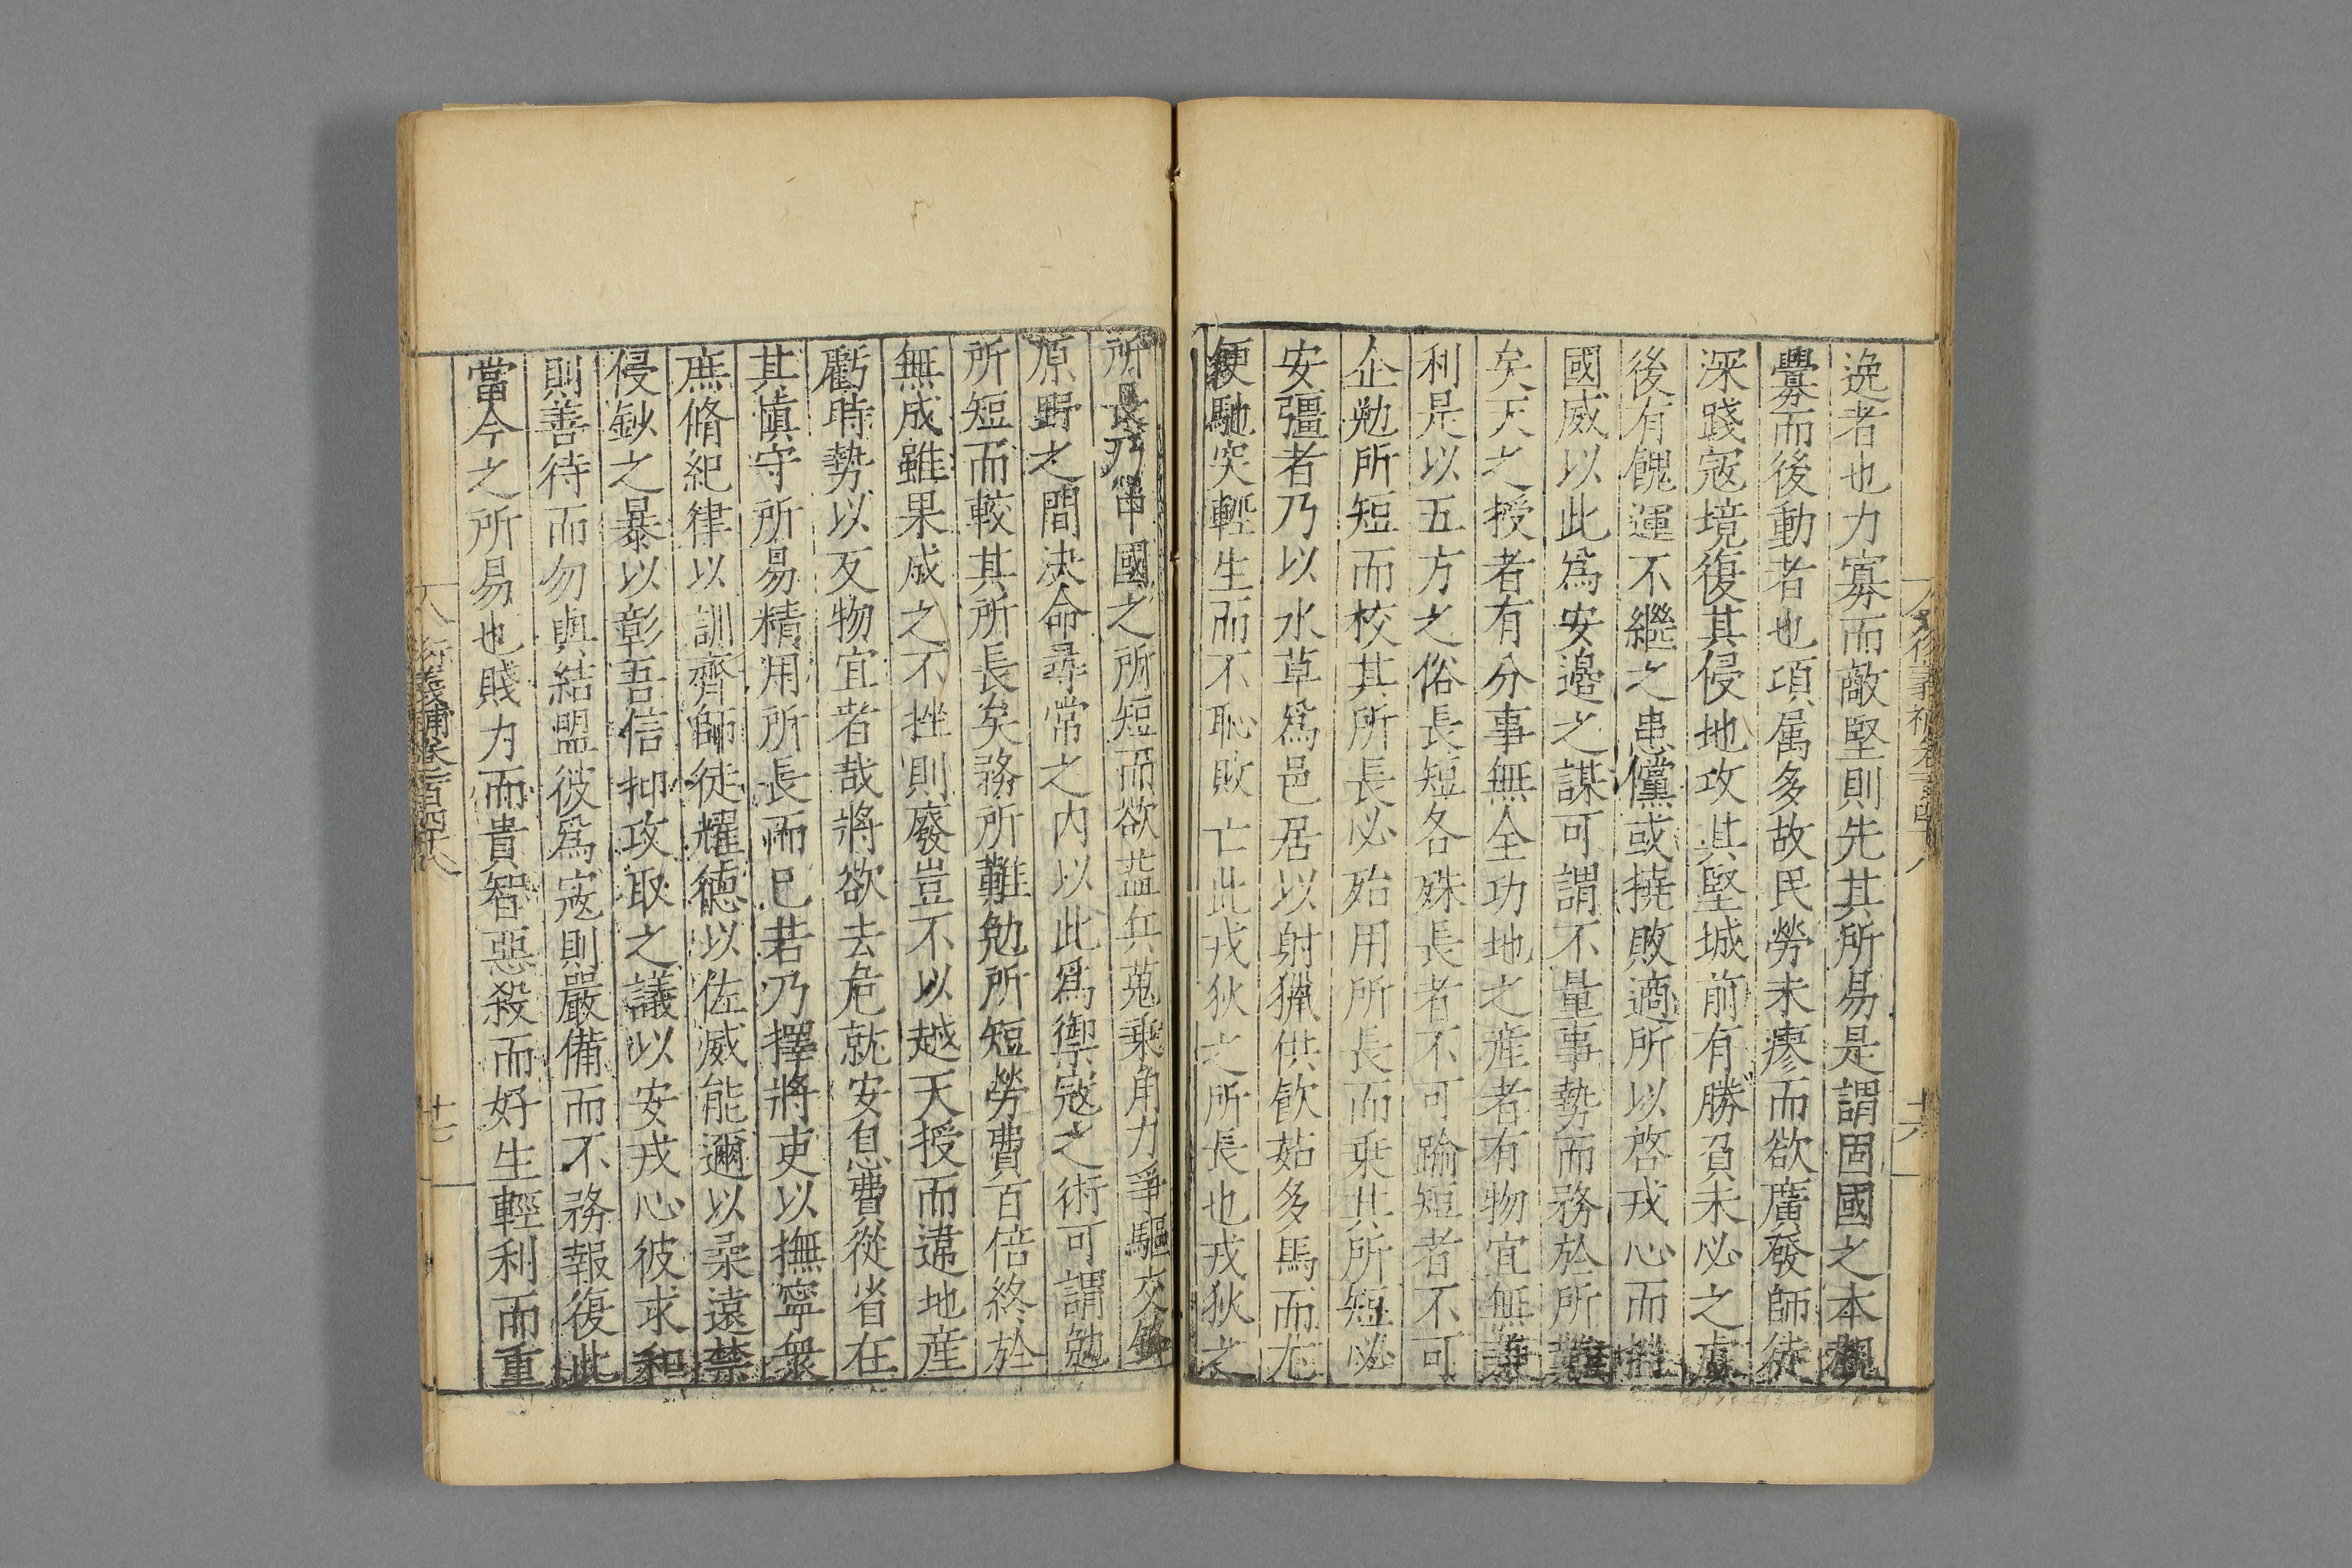 衍義補卷一百四十八
十六
逸者也力寡而敵堅則先其所易是謂固國之本觀
釁而後動者也項属多故民勞未瘳而欲廣發師徒
深踐寇境復其侵地攻其堅城前有勝負未必之虞
後有餽運不繼之患儻或撓敗適所以啓戎心而挫
國威以此爲安邉之謀可謂不量事勢而務於所難
矣天之授者有分事無全功地之産者有物宜無兼
利是以五方之俗長短各殊長者不可踰短者不可
企勉所短而校其所長必殆用所長而乗其所短必
安彊者乃以水草爲邑居以射獵供飲茹多馬而尤
便馳突輕生而不恥敗亡此戎狄之所長也戎狄之
所長乃中國之所短而欲益兵蒐乗角力爭驅交鋒
原野之間決命尋常之内以此爲禦寇之術可謂勉
所短而較其所長矣務所難勉所短勞費百倍終於
無成雖果成之不挫則廢豈不以越天授而違地産
虧時勢以反物宜者哉將欲去危就安息費從省在
其慎守所易精用所長而已若乃擇將吏以撫寧衆
庶脩紀律以訓齊師徒耀德以佐威能邇以柔遠禁
侵鈔之暴以彰吾信抑攻取之議以安戎心彼求和
則善待而勿與結盟彼爲寇則嚴備而不務報復此
當今之所易也賤力而貴智惡殺而好生輕利而重
衍義補卷一百四十八
十七